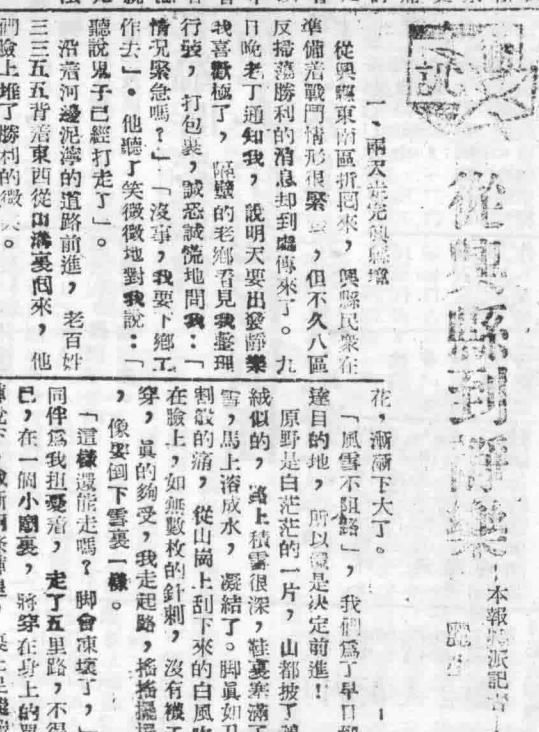 從興縣到靜樂
本報特派記者
一、兩天走完興縣境
從興縣東南區折回來，興縣民衆在
準備着戰鬥情形很緊，但不久八區
反掃蕩勝利的消息却到處傳來了。九
日晚老丁通知我，說明天要出發靜樂
我喜歡極了，隔壁的老鄉看見我整理
行裝，打包裹，誠恐誠慌地問我：「
情況緊急嗎？」「沒事，我要下鄉工
作去」。他聽了笑微微地對我說：「
聽說鬼子已經打走了」。
沿着河邊泥濘的道路前進，老百姓
三三五五背着東西從山溝裏囘來，他
們臉上堆了勝利的微　。
花，漸漸下大了。
「風雪不阻路」，我們爲了早日到
達目的地，所以還是決定前進！
原野是白茫茫的一片，山都披了
絨似的，路上積雪很深，鞋裏塞滿了
雪，馬上溶成水，凝結了。脚眞如刀
割般的痛，從山崗上刮下來的白風吹
在臉上，如無數枚的針刺，沒有襪子
穿，眞的夠受，我走起路，搖搖擺擺
，像要倒下雪裏一樣。
「這樣還能走嗎？脚會凍壞了，」
同伴爲我担憂着，走了五里路，不得
已，在一個小廟裏，將穿在身上的單